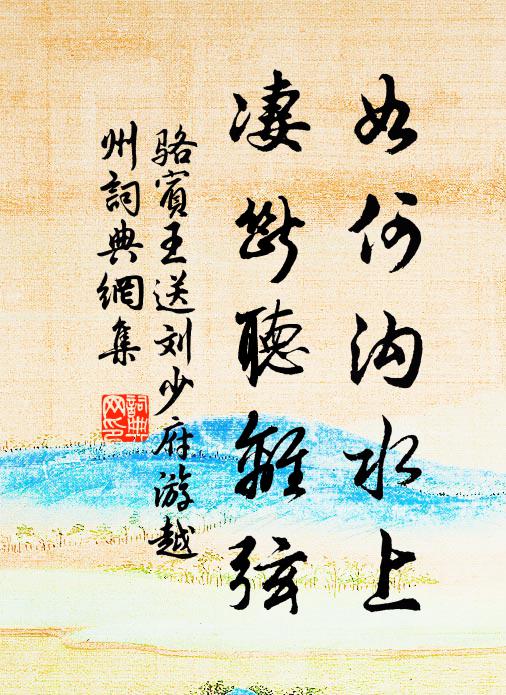 如何沟水上
凄断聽離弦
骆賓王送刘少府游越
州詞典網集
詞典网印